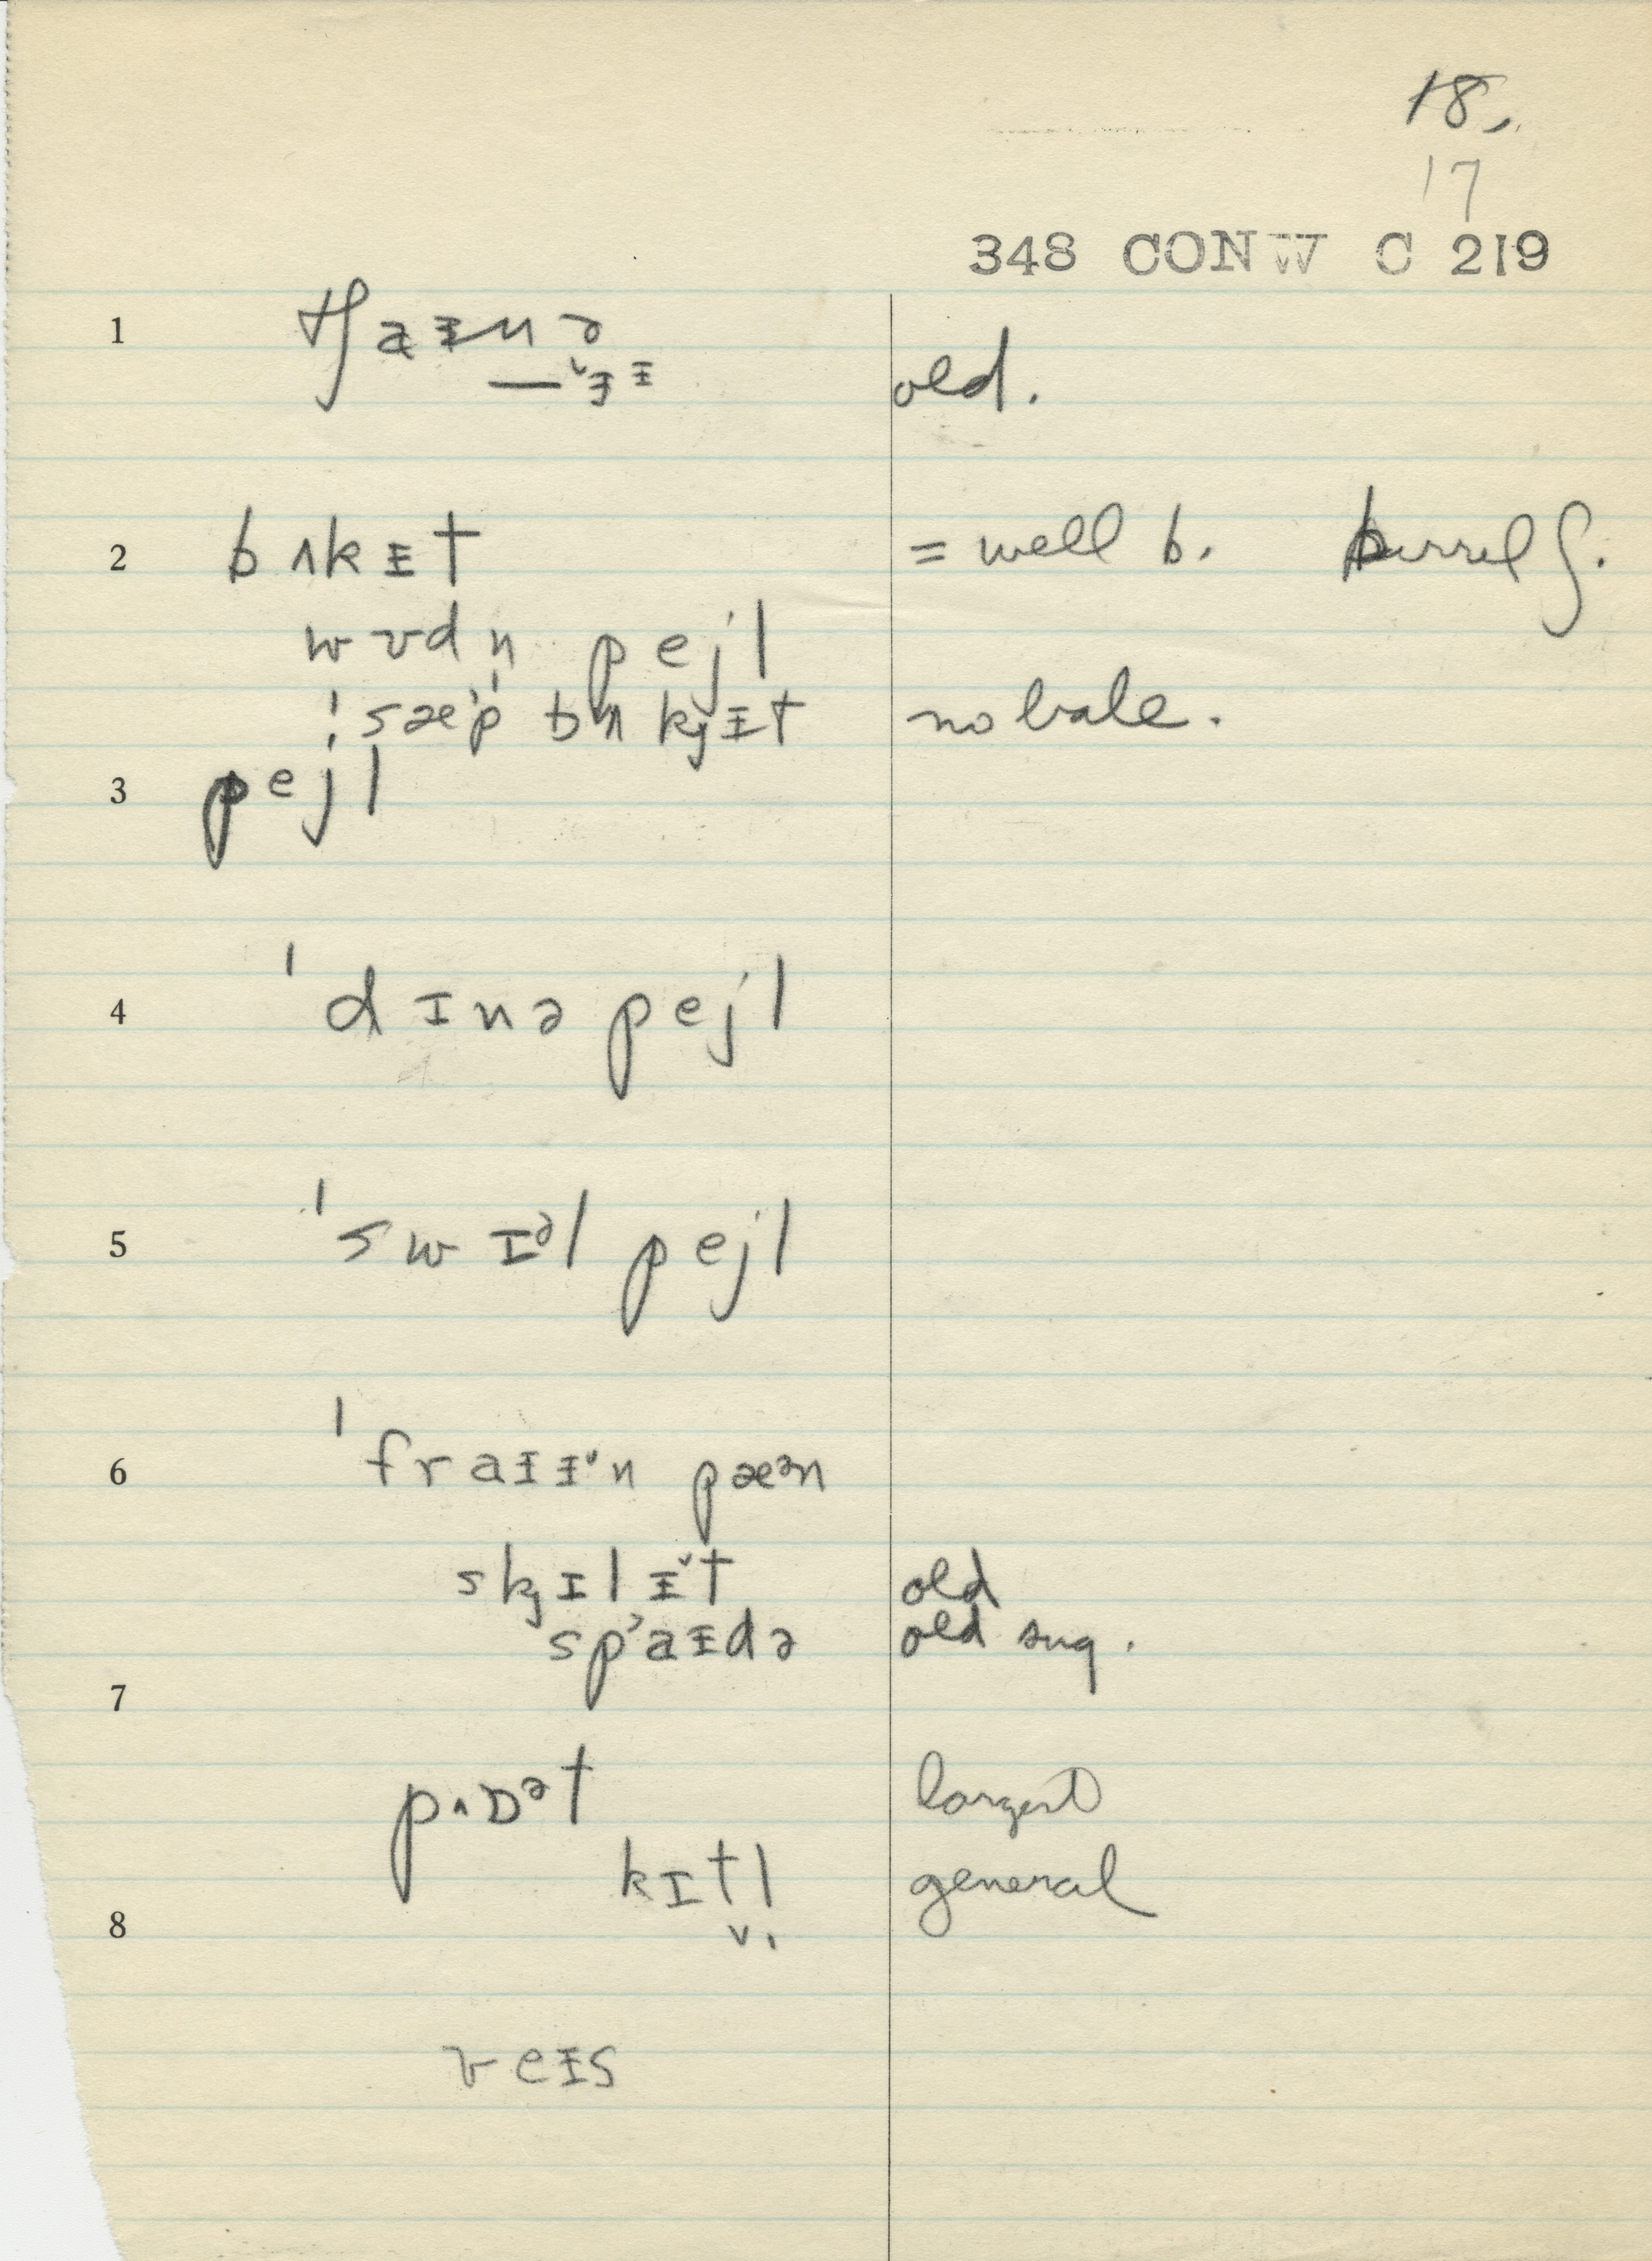 18.
17
348 CONW C 219
1 tʃaᵻnə old.
— ˇᵻᵻ
2 bʌkᵻt = well b. barrel ʃ.
wʊdn̩ pejl
ˈsæˀp bʌkjᵻt no bale.
3 pejl
4 ˈdɪnə pejl
5 ˈswɪᵊl pejl
6 ˈfraᵻᵻˇn pæᵊn
skjɪlᵻˇt old
spʼaᵻdə old sug.
7
pʌɒᵊt largest
kɪt̬l̩ general
8
veᵻs